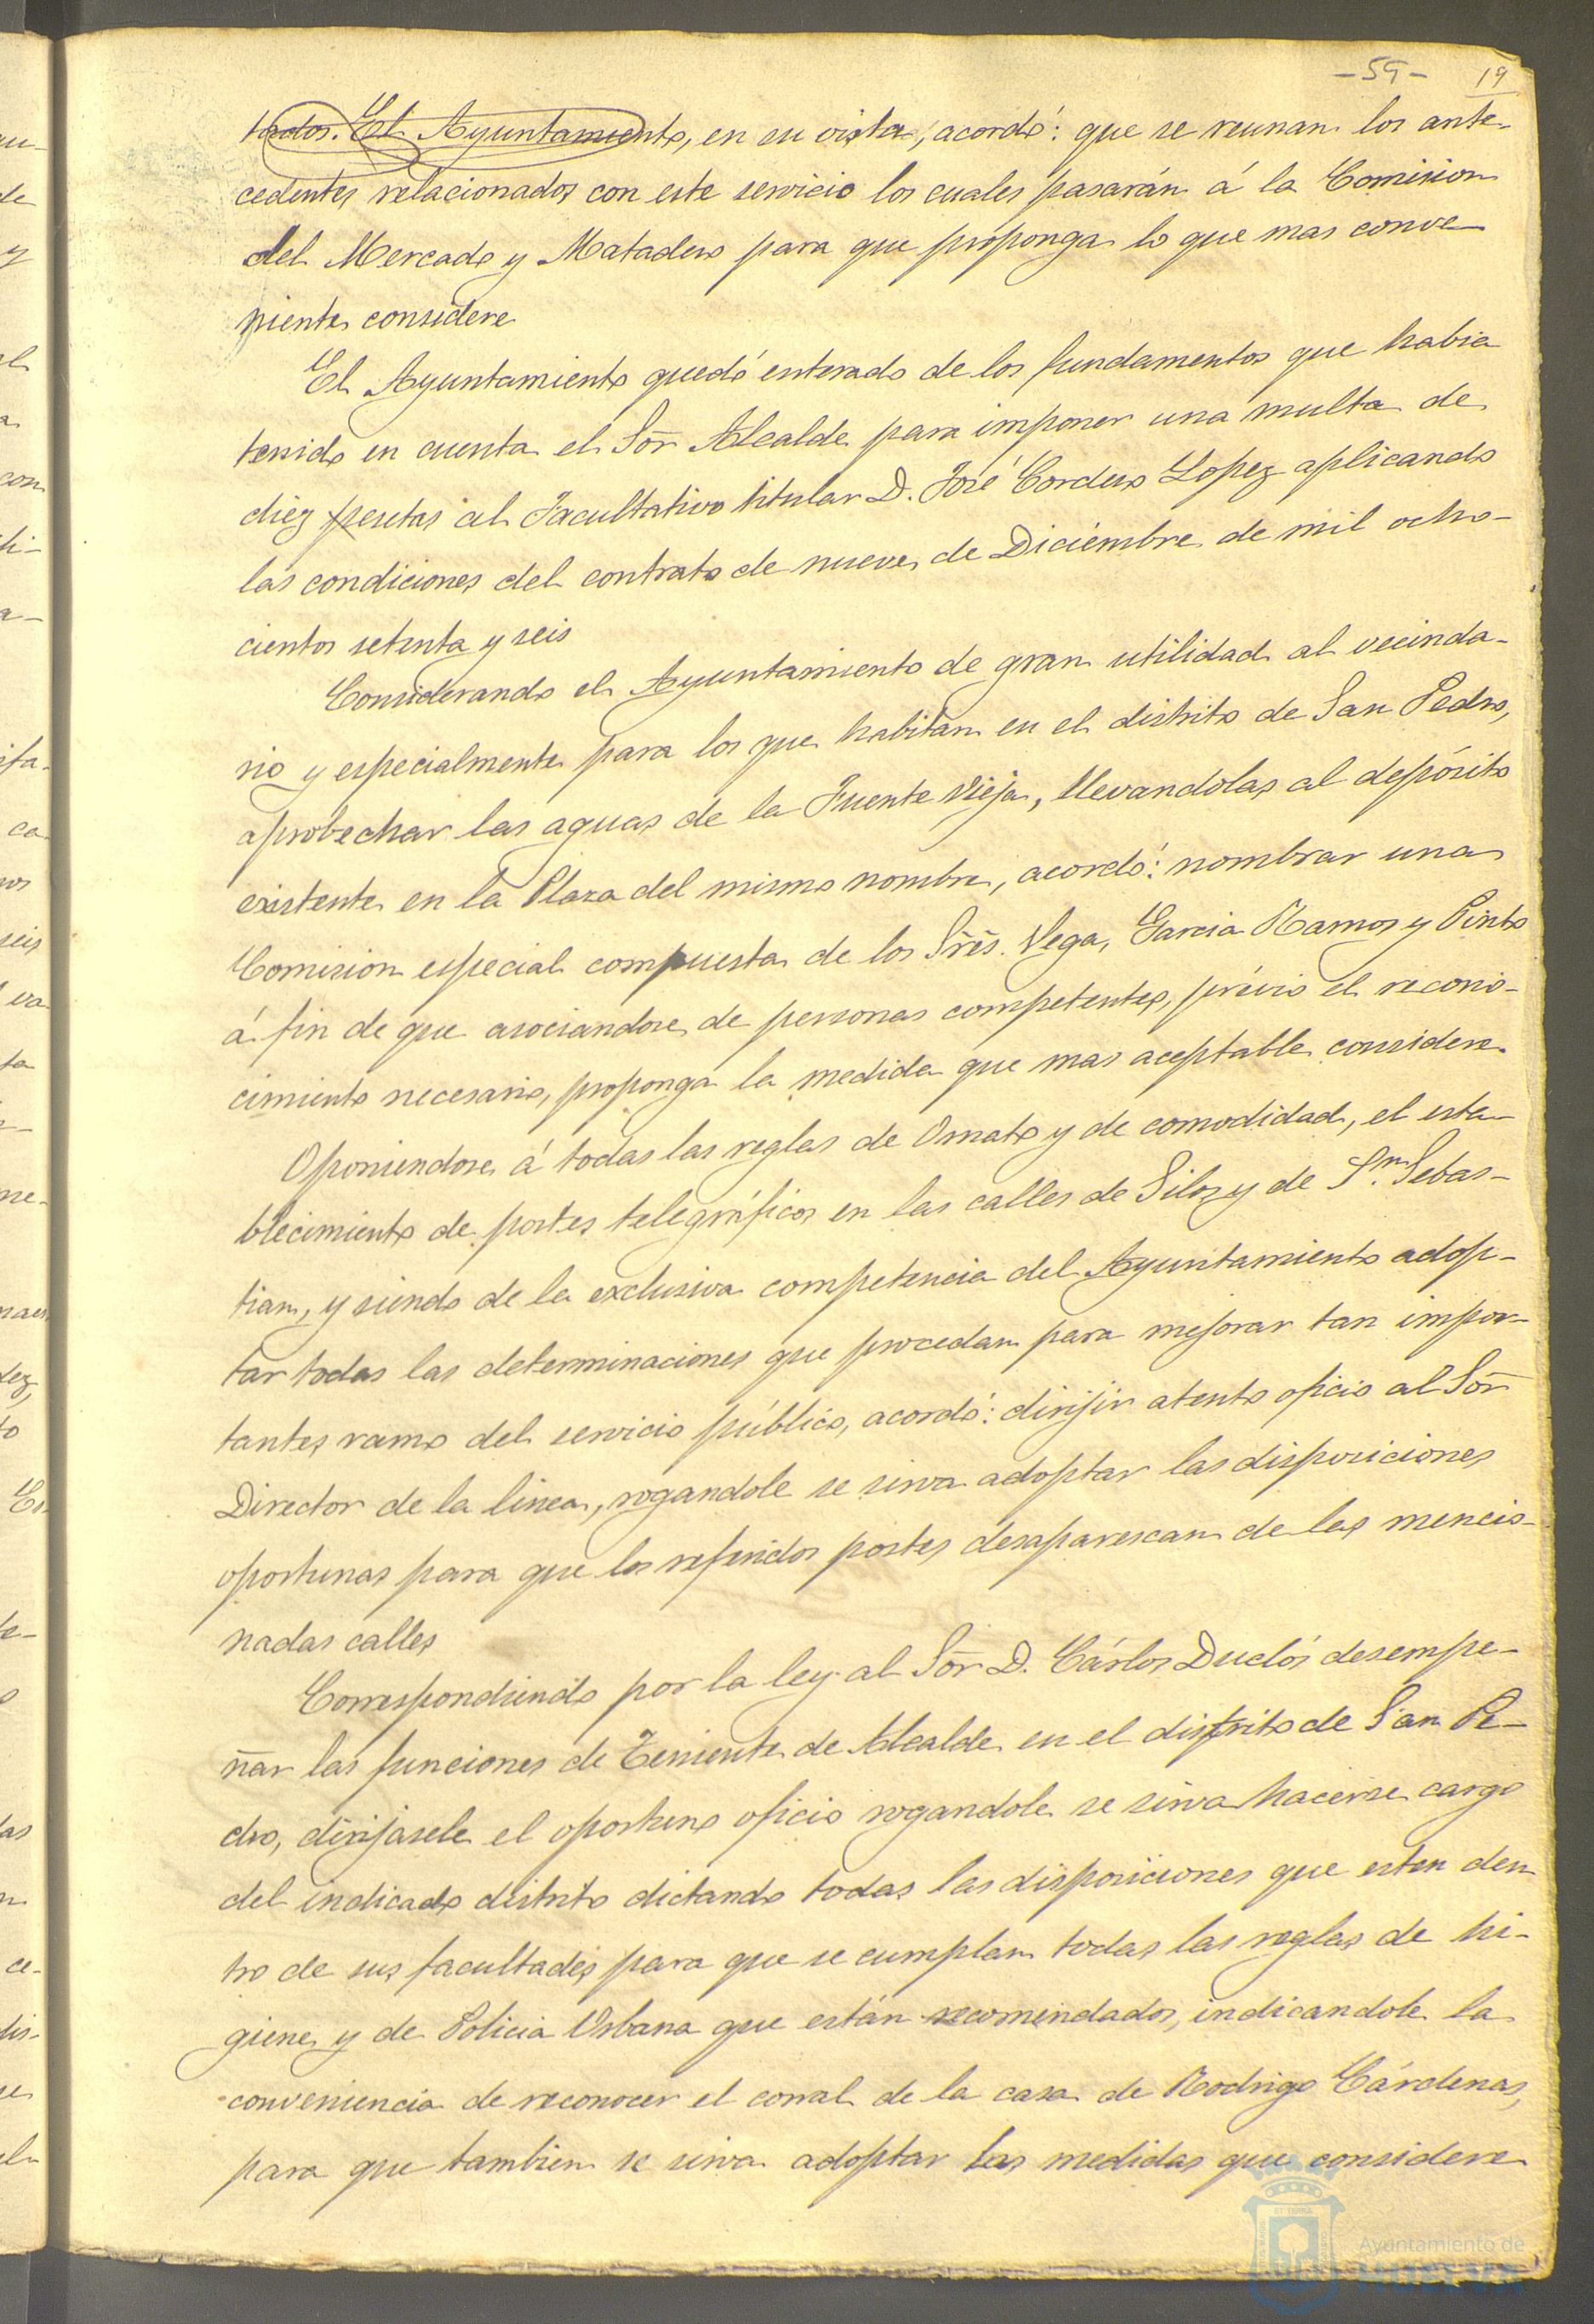 -59- 19
tados. El Ayuntamiento, en su vista, acordó: que se reunan los ante-
cedentes relacionados con este servicio los cuales pasarán á la Comision
del Mercado y Matadero para que proponga lo que mas conve-
niente considere
El Ayuntamiento quedó enterado de los fundamentos que habia
tenido en cuenta el Sör Alcalde para imponer una multa de
diez pesetas al Facultativo titular D. José Cordero Lopez aplicando
las condiciones del contrato de nueve de Diciembre de mil ocho-
cientos setenta y seis
Considerando el Ayuntamiento de gran utilidad al vecinda-
rio y especialmente para los que habitan en el distrito de San Pedro,
aprobechar las aguas de la Fuente Vieja, llevandolas al depósito
existente en la Plaza del mismo nombre, acordó: nombrar una
Comision especial compuesta de los Srēs. Vega, Garcia Ramos y Pinto
á fin de que asociandose de personas competentes, prévio el recono-
cimiento necesario, proponga la medida que mas aceptable considere.
Oponiendose á todas las reglas de Ornato y de comodidad, el esta-
blecimiento de postes telegráficos en las calles de Silos y de Sn. Sebas-
tian, y siendo de la exclusiva competencia del Ayuntamiento adop-
tar todas las determinaciones que procedan para mejorar tan impor-
tantes ramo del servicio público, acordó: dirijir atento oficio al Sōr
Director de la linea, rogandole se sirva adoptar las disposiciones
oportunas para que los referidos postes desaparescan de las mencio-
nadas calles
Correspondiendo por la ley al Sōr D. Cárlos Duclós desempe-
ñar las funciones de Teniente de Alcalde en el distrito de San Pe-
dro, dirijasele el oportuno oficio rogandole se sirva hacerse cargo
del indicado distrito dictando todas las disposiciones que esten den
tro de sus facultades para que se cumplan todas las reglas de hi-
giene y de Policia Urbana que están recomendados, indicandole la
conveniencia de reconocer el corral de la casa de Rodrigo Cárdenas,
para que tambien se sirva adoptar las medidas que considere
Ayuntamiento de
HUELVA